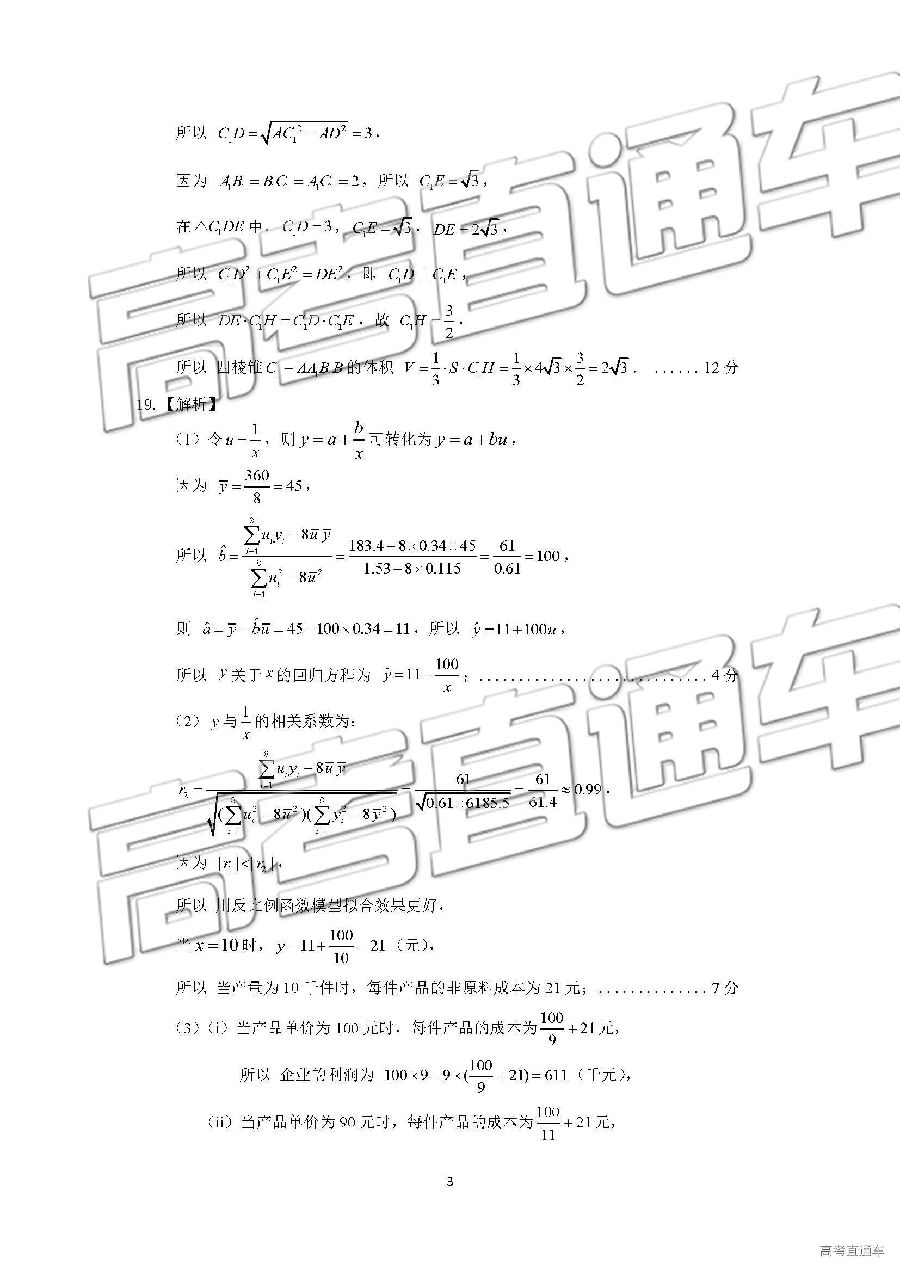 所以 C₁D=√(AC₁²−AD²)=3，
因为 A₁B₁=B₁C₁=A₁C₁=2，所以 C₁E=√3，
在△C₁DE中，C₁D=3，C₁E=√3，DE=2√3，
所以 C₁D²+C₁E²=DE²，即 C₁D⊥C₁E，
所以 DE·C₁H=C₁D·C₁E，故 C₁H=3/2，
所以 四棱锥C₁−AA₁B₁B的体积 V=1/3·S·C₁H=1/3×4√3×3/2=2√3． ......12分
19.【解析】
（1）令u=1/x，则y=a+b/x可转化为y=a+bu，
因为 y̅=360/8=45，
所以 b̂=(∑u_i y_i−8u̅ y̅)/(∑u_i²−8u̅²)=(183.4−8×0.34×45)/(1.53−8×0.115)=61/0.61=100，
则 â=y̅−b̂u̅=45−100×0.34=11，所以 ŷ=11+100u，
所以 y关于x的回归方程为 ŷ=11+100/x；.............................4分
（2）y与1/x的相关系数为：
r₂=(∑u_i y_i−8u̅ y̅)/√((∑u_i²−8u̅²)(∑y_i²−8y̅²))=61/√(0.61×6185.5)=61/61.4≈0.99，
因为 |r₁|<|r₂|，
所以 用反比例函数模型拟合效果更好，
当x=10时，y=11+100/10=21（元），
所以 当产量为10千件时，每件产品的非原料成本为21元；..............7分
（3）（i）当产品单价为100元时，每件产品的成本为100/9+21元，
所以 企业的利润为 100×9−9×(100/9+21)=611（千元），
（ii）当产品单价为90元时，每件产品的成本为100/11+21元，
3
高考直通车
高考直通车
高考直通车